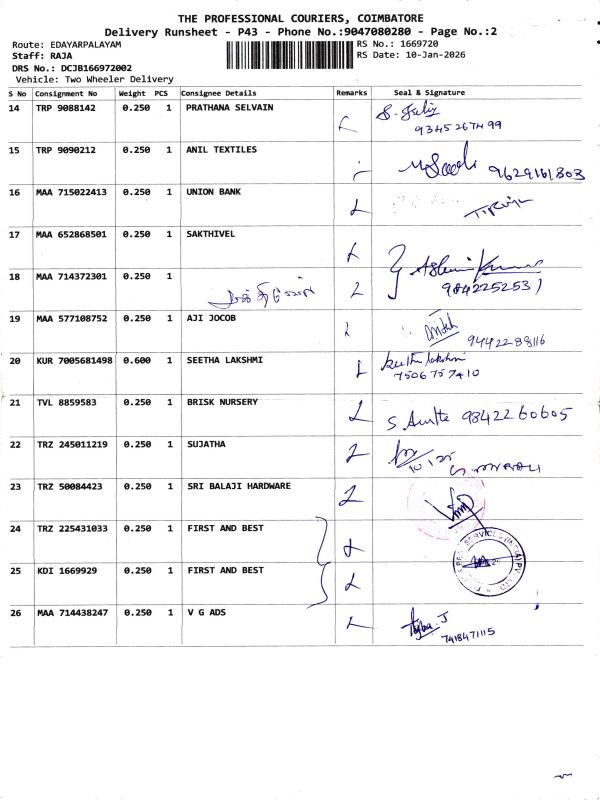 THE PROFESSIONAL COURIERS, COIMBATORE
Delivery Runsheet - P43 - Phone No.:9047080280 - Page No.:2
Route: EDAYARPALAYAM RS No.: 1669720
Staff: RAJA RS Date: 10-Jan-2026
DRS No.: DCJB166972002
Vehicle: Two Wheeler Delivery
S No Consignment No Weight PCS Consignee Details Remarks Seal & Signature
14 TRP 9088142 0.250 1 PRATHANA SELVAIN
9345267499
15 TRP 9090212 0.250 1 ANIL TEXTILES
9629161803
16 MAA 715022413 0.250 1 UNION BANK
17 MAA 652868501 0.250 1 SAKTHIVEL
18 MAA 714372301 0.250 1
9842252531
19 MAA 577108752 0.250 1 AJI JOCOB
9442288116
20 KUR 7005681498 0.600 1 SEETHA LAKSHMI
7506757410
21 TVL 8859583 0.250 1 BRISK NURSERY
9842260605
22 TRZ 245011219 0.250 1 SUJATHA
23 TRZ 50084423 0.250 1 SRI BALAJI HARDWARE
24 TRZ 225431033 0.250 1 FIRST AND BEST
25 KDI 1669929 0.250 1 FIRST AND BEST
26 MAA 714438247 0.250 1 V G ADS
7418471115